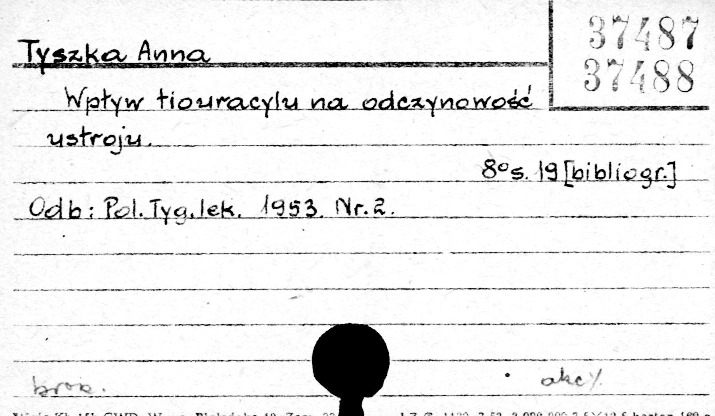 37487
37488
Tyszka Anna
Wpływ tiouracylu na odczynowość
ustroju.
8° s. 19 [bibliogr.]
Odb: Pol. Tyg. lek. 1953. Nr. 2.
brosz.
akc.